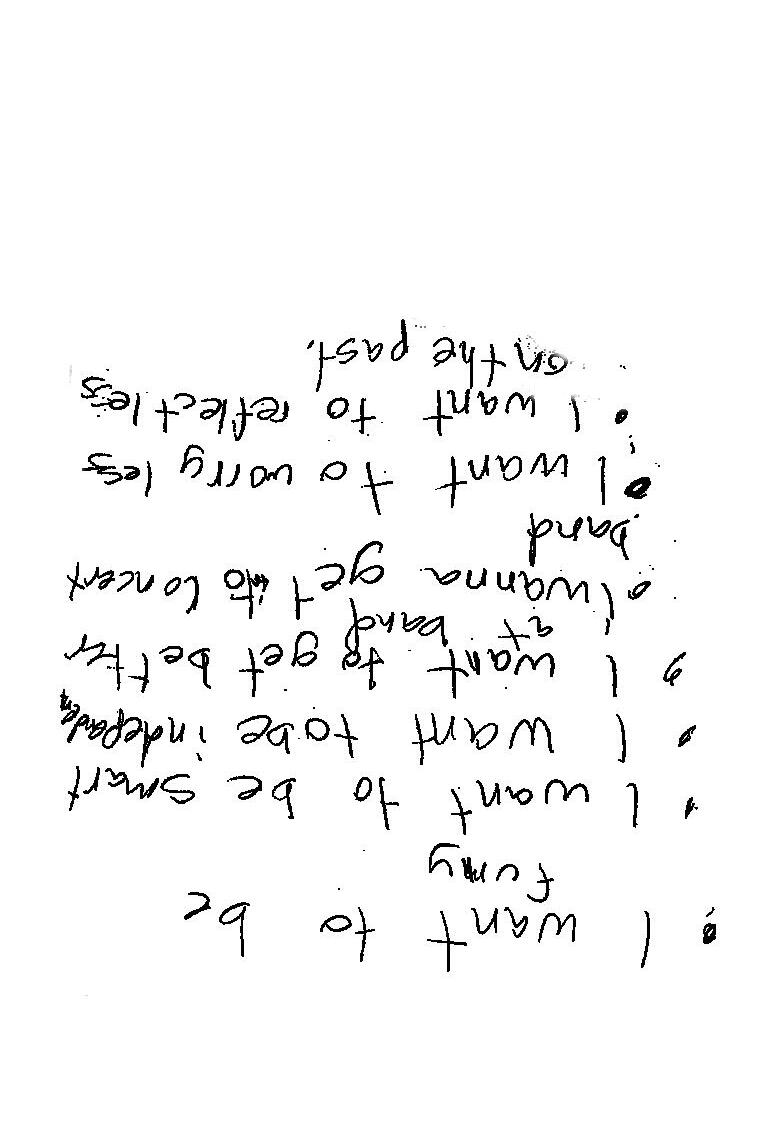 • I want to be
funny
• I want to be smart
• I want to be independent
• I want to get better
at band
• I wanna get into concert
band
• I want to worry less
• I want to reflect less
on the past.